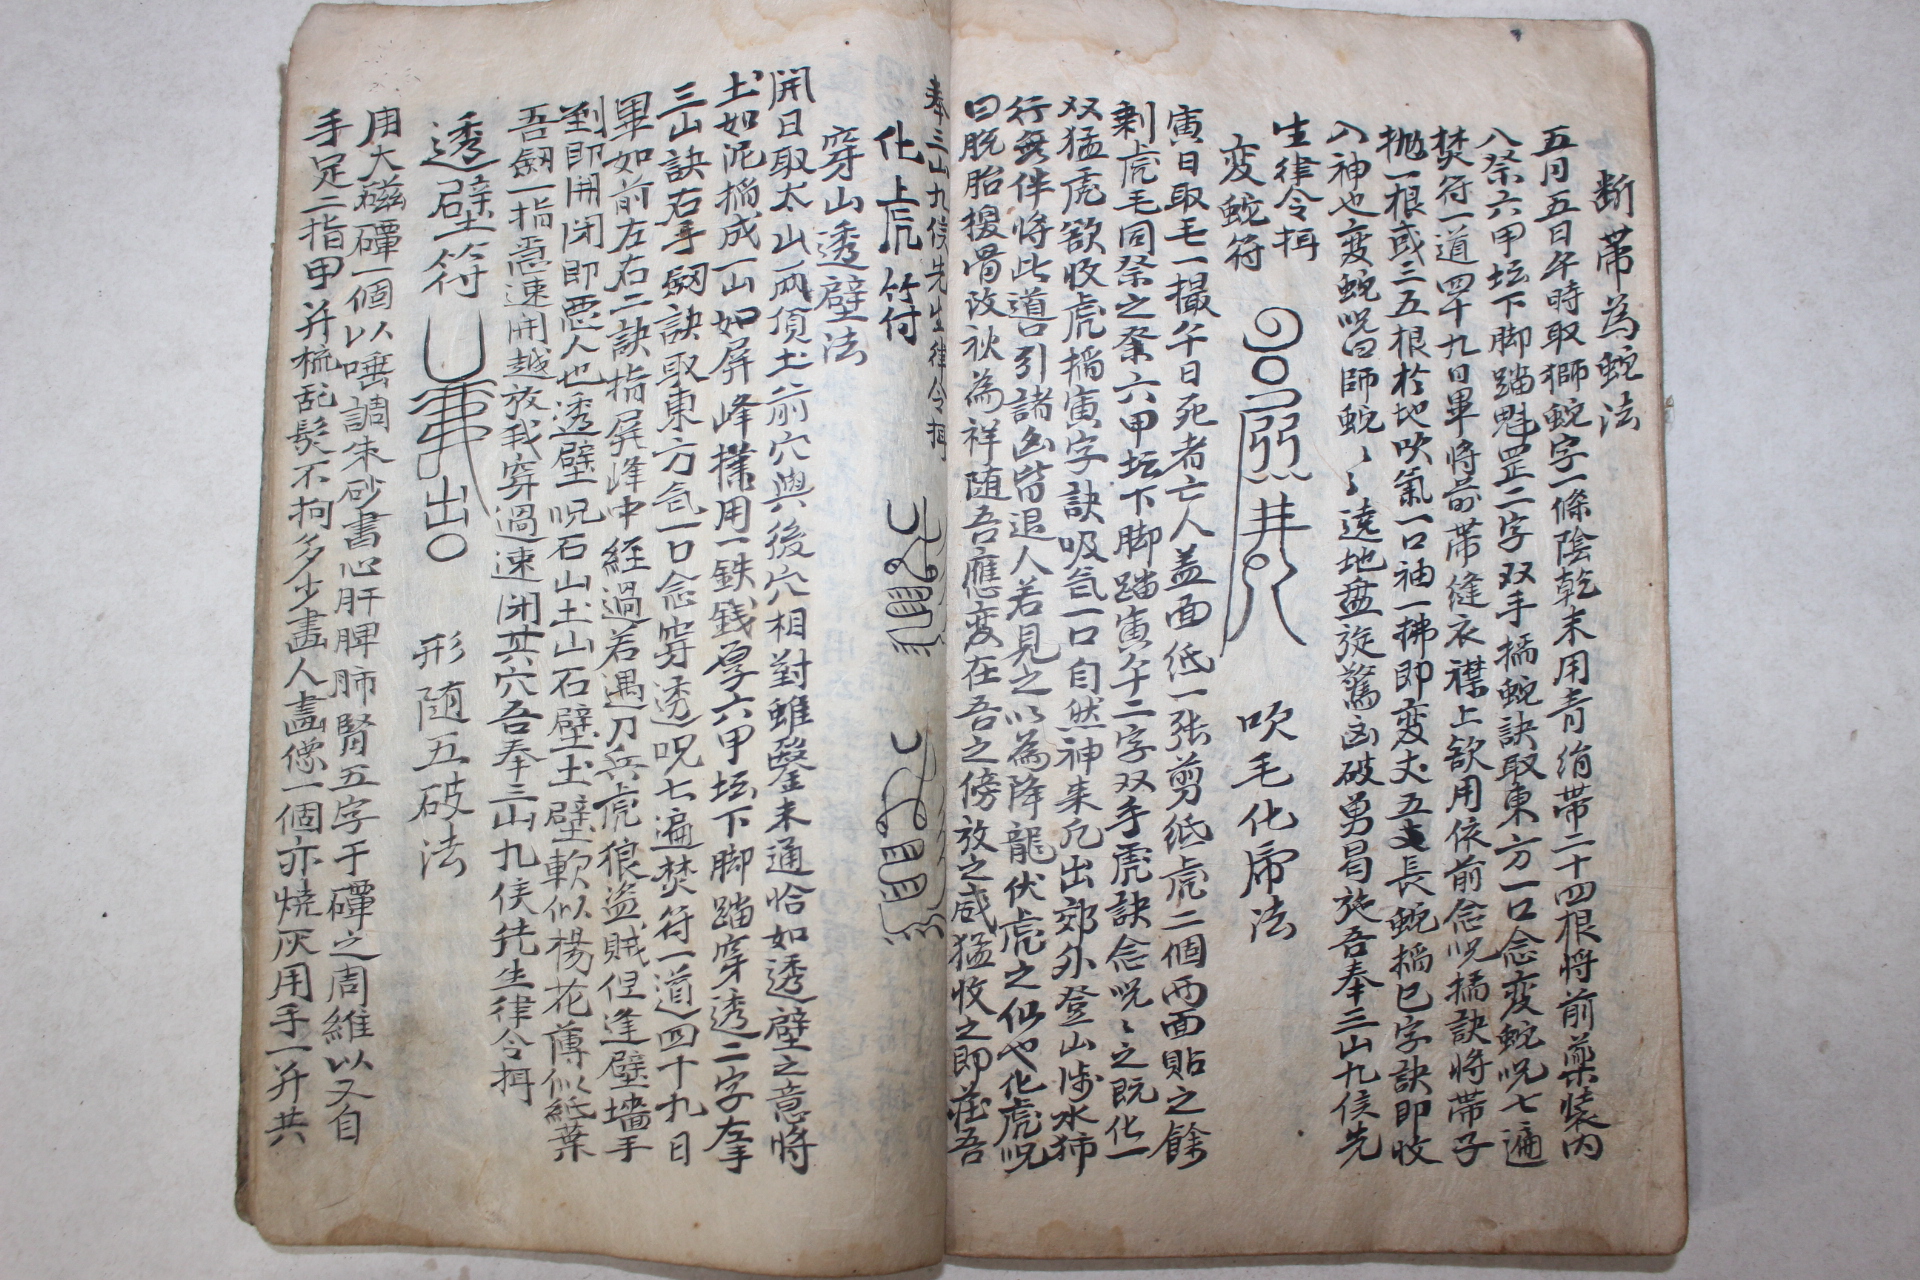 断帶為蛇法
五月五日午時取獅蛇字一條陰乾末用青絹帶二十四根将前藥装内
八祭六甲坛下脚踏魁罡二字双手搐蛇訣取東方一口念变蛇咒七遍
焚符一道四十九日畢将前帶縫衣襟上欲用依前念咒搐訣将帶子
抛一根或三五根於地吹氣一口袖一拂即变丈五長蛇搐巳字訣即收
入神也变蛇咒曰師蛇〻〻遶地盘旋驚凶破勇曷旋吾奉三山九侯先
生律令揖
变蛇符
吹毛化席法
寅日取毛一撮午日死者亡人盖面纸一张剪纸虎二個两面貼之餘
剩虎毛同祭之祭六甲坛下脚踏寅午二字双手虎訣念咒〻之既化一
双猛虎欲收虎搐寅字訣吸氣一口自然神来凡出郊外登山涉水
行無伴将此道引諸凶皆退人若見之以為降龍伏虎之仙也化虎咒
曰脱胎换骨改秋為祥随吾應变在吾之傍放之咸猛收之即藏吾
奉三山九侯先生律令揖
化上虎符
穿山透壁法
開日取太山兩頂土前穴與後穴相對雖鑿未通恰如透壁之意将
土如泥搐成一山如屏峰攩用一鉄錢厚六甲坛下脚踏穿透二字左手
三山訣右手劔訣取東方氣一口念穿透咒七遍焚符一道四十九日
畢如前左右二訣指屏峰中経過若遇刀兵虎狼盗賊但逢壁墻手
到即開閉即悪人也透壁咒石山土山石壁土壁軟似楊花薄似紙葉
吾劔一指急速開越放我穿過速闭其穴吾奉三山九侯先生律令揖
透壁符
形随五破法
用大磁礶一個以唾調朱砂書心肝脾肺腎五字于礶之周維以又自
手足二指甲并梳乱髮不拘多少畫人畫像一個亦燒灰用手一并共